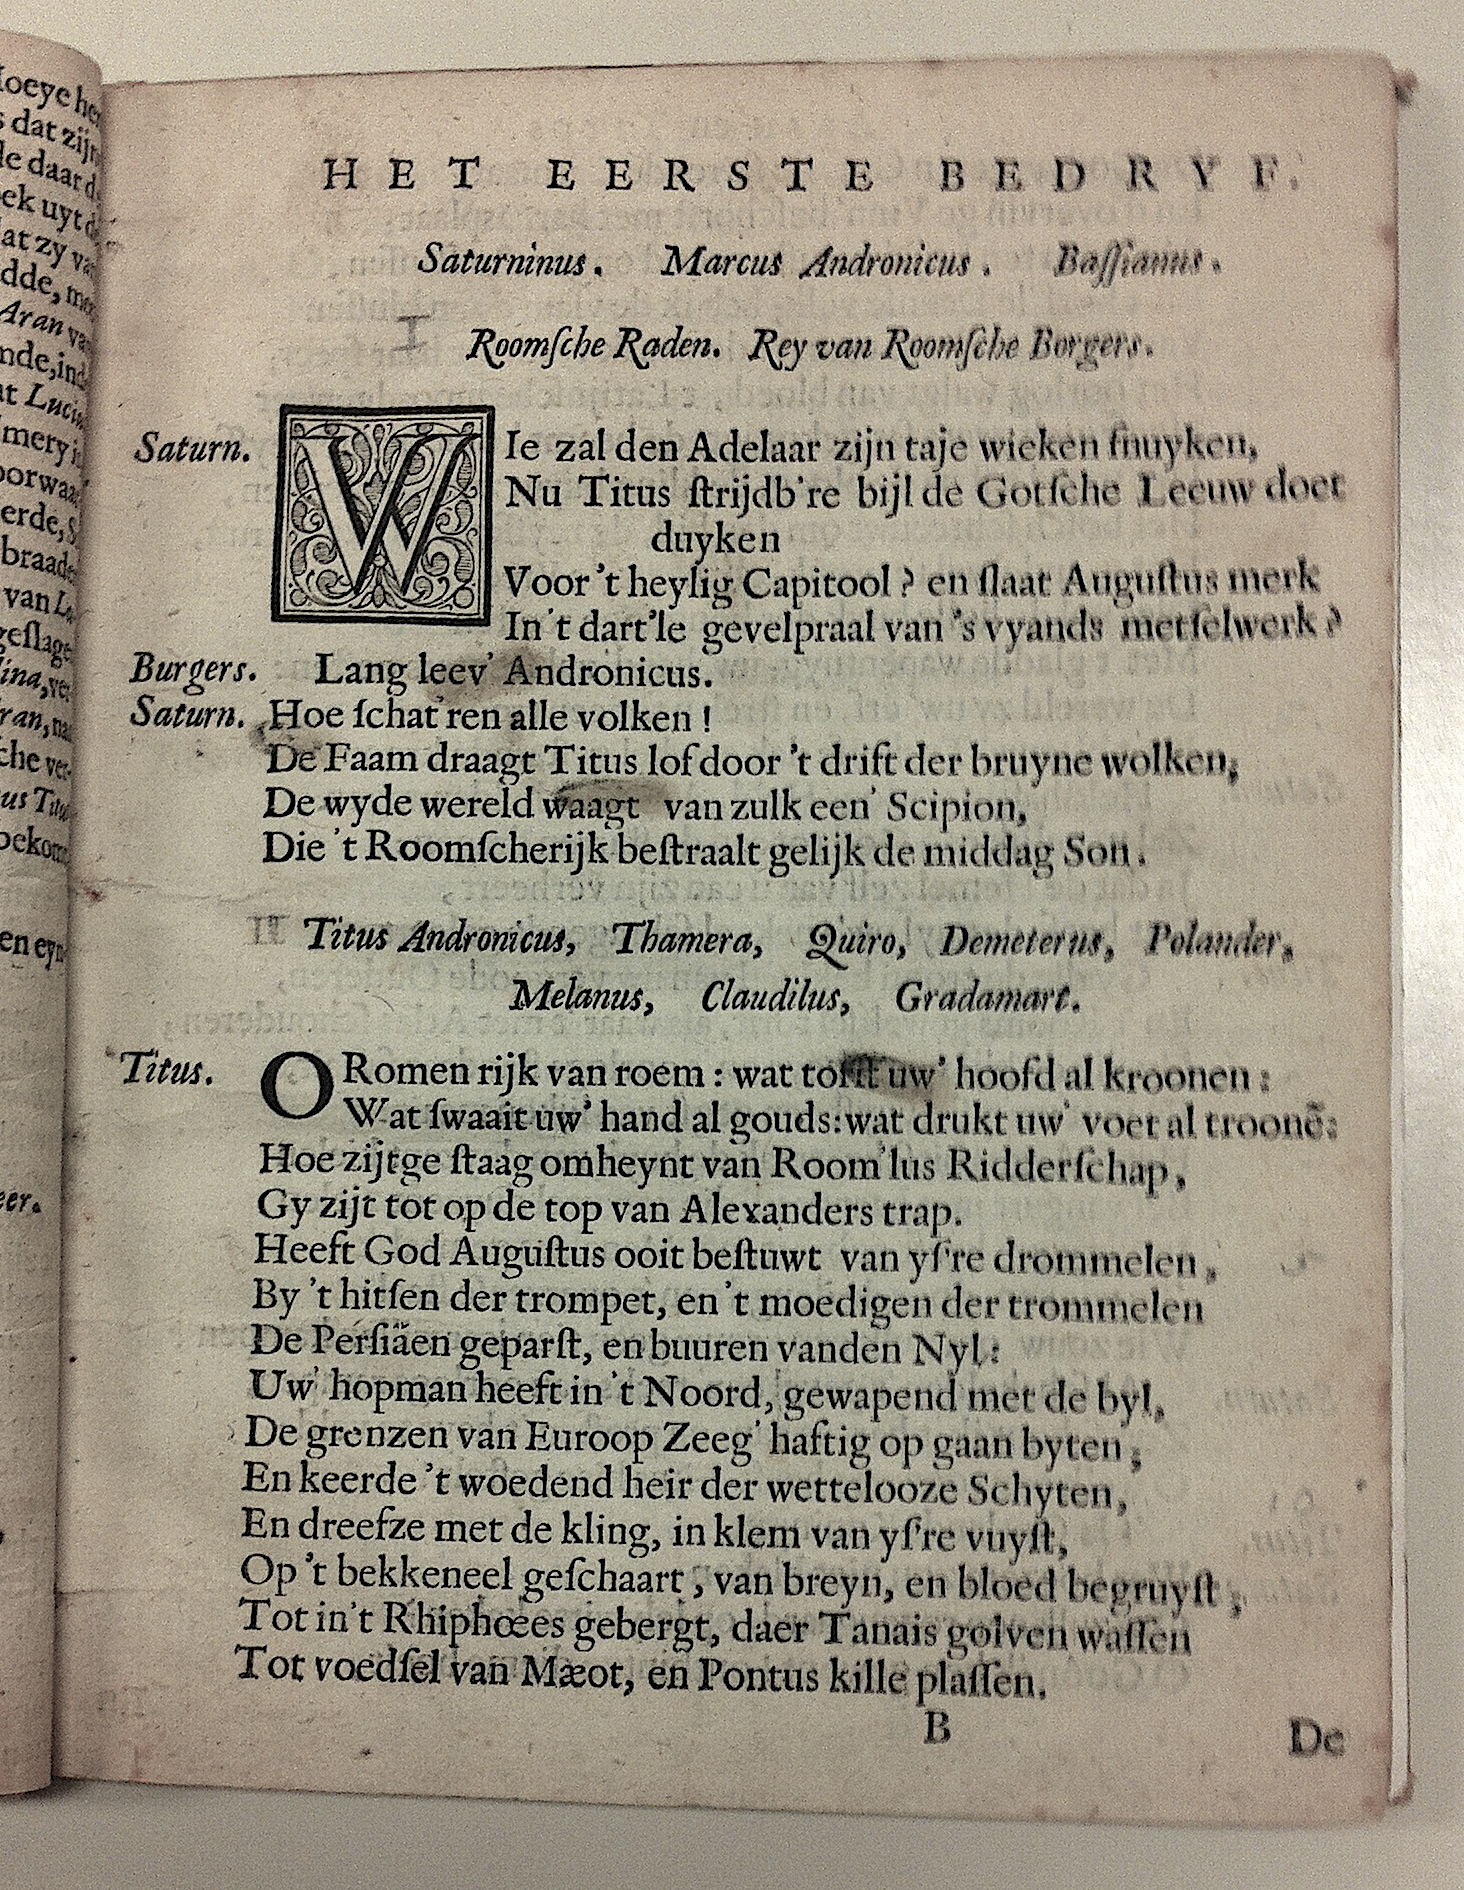 HET EERSTE BEDRYF.
Saturninus. Marcus Andronicus. Baſſianus.
I Roomſche Raden. Rey van Roomſche Borgers.
Saturn. WIe zal den Adelaar zijn taje wieken ſnuyken,
Nu Titus ſtrijdb're bijl de Gotſche Leeuw doet
duyken
Voor 't heylig Capitool? en ſlaat Auguſtus merk
In 't dart'le gevelpraal van 's vyands metſelwerk?
Burgers. Lang leev' Andronicus.
Saturn. Hoe ſchat'ren alle volken!
De Faam draagt Titus lof door 't drift der bruyne wolken,
De wyde wereld waagt van zulk een' Scipion,
Die 't Roomſcherijk beſtraalt gelijk de middag Son.
II Titus Andronicus, Thamera, Quiro, Demeterus, Polander,
Melanus, Claudilus, Gradamart.
Titus. O Romen rijk van roem: wat torſt uw' hoofd al kroonen:
Wat ſwaait uw' hand al gouds: wat drukt uw' voet al troonẽ:
Hoe zijtge ſtaag omheynt van Room'lus Ridderſchap,
Gy zijt tot op de top van Alexanders trap.
Heeft God Auguſtus ooit beſtuwt van yſ're drommelen,
By 't hitſen der trompet, en 't moedigen der trommelen
De Perſiäen geparſt, en buuren vanden Nyl:
Uw' hopman heeft in 't Noord, gewapend met de byl,
De grenzen van Euroop Zeeg' haftig op gaan byten,
En keerde 't woedend heir der wettelooze Schyten,
En dreefze met de kling, in klem van yſ're vuyſt,
Op 't bekkeneel geſchaart, van breyn, en bloed begruyſt,
Tot in't Rhiphœes gebergt, daer Tanais golven waſſen
Tot voedſel van Mæot, en Pontus kille plaſſen.
B
De